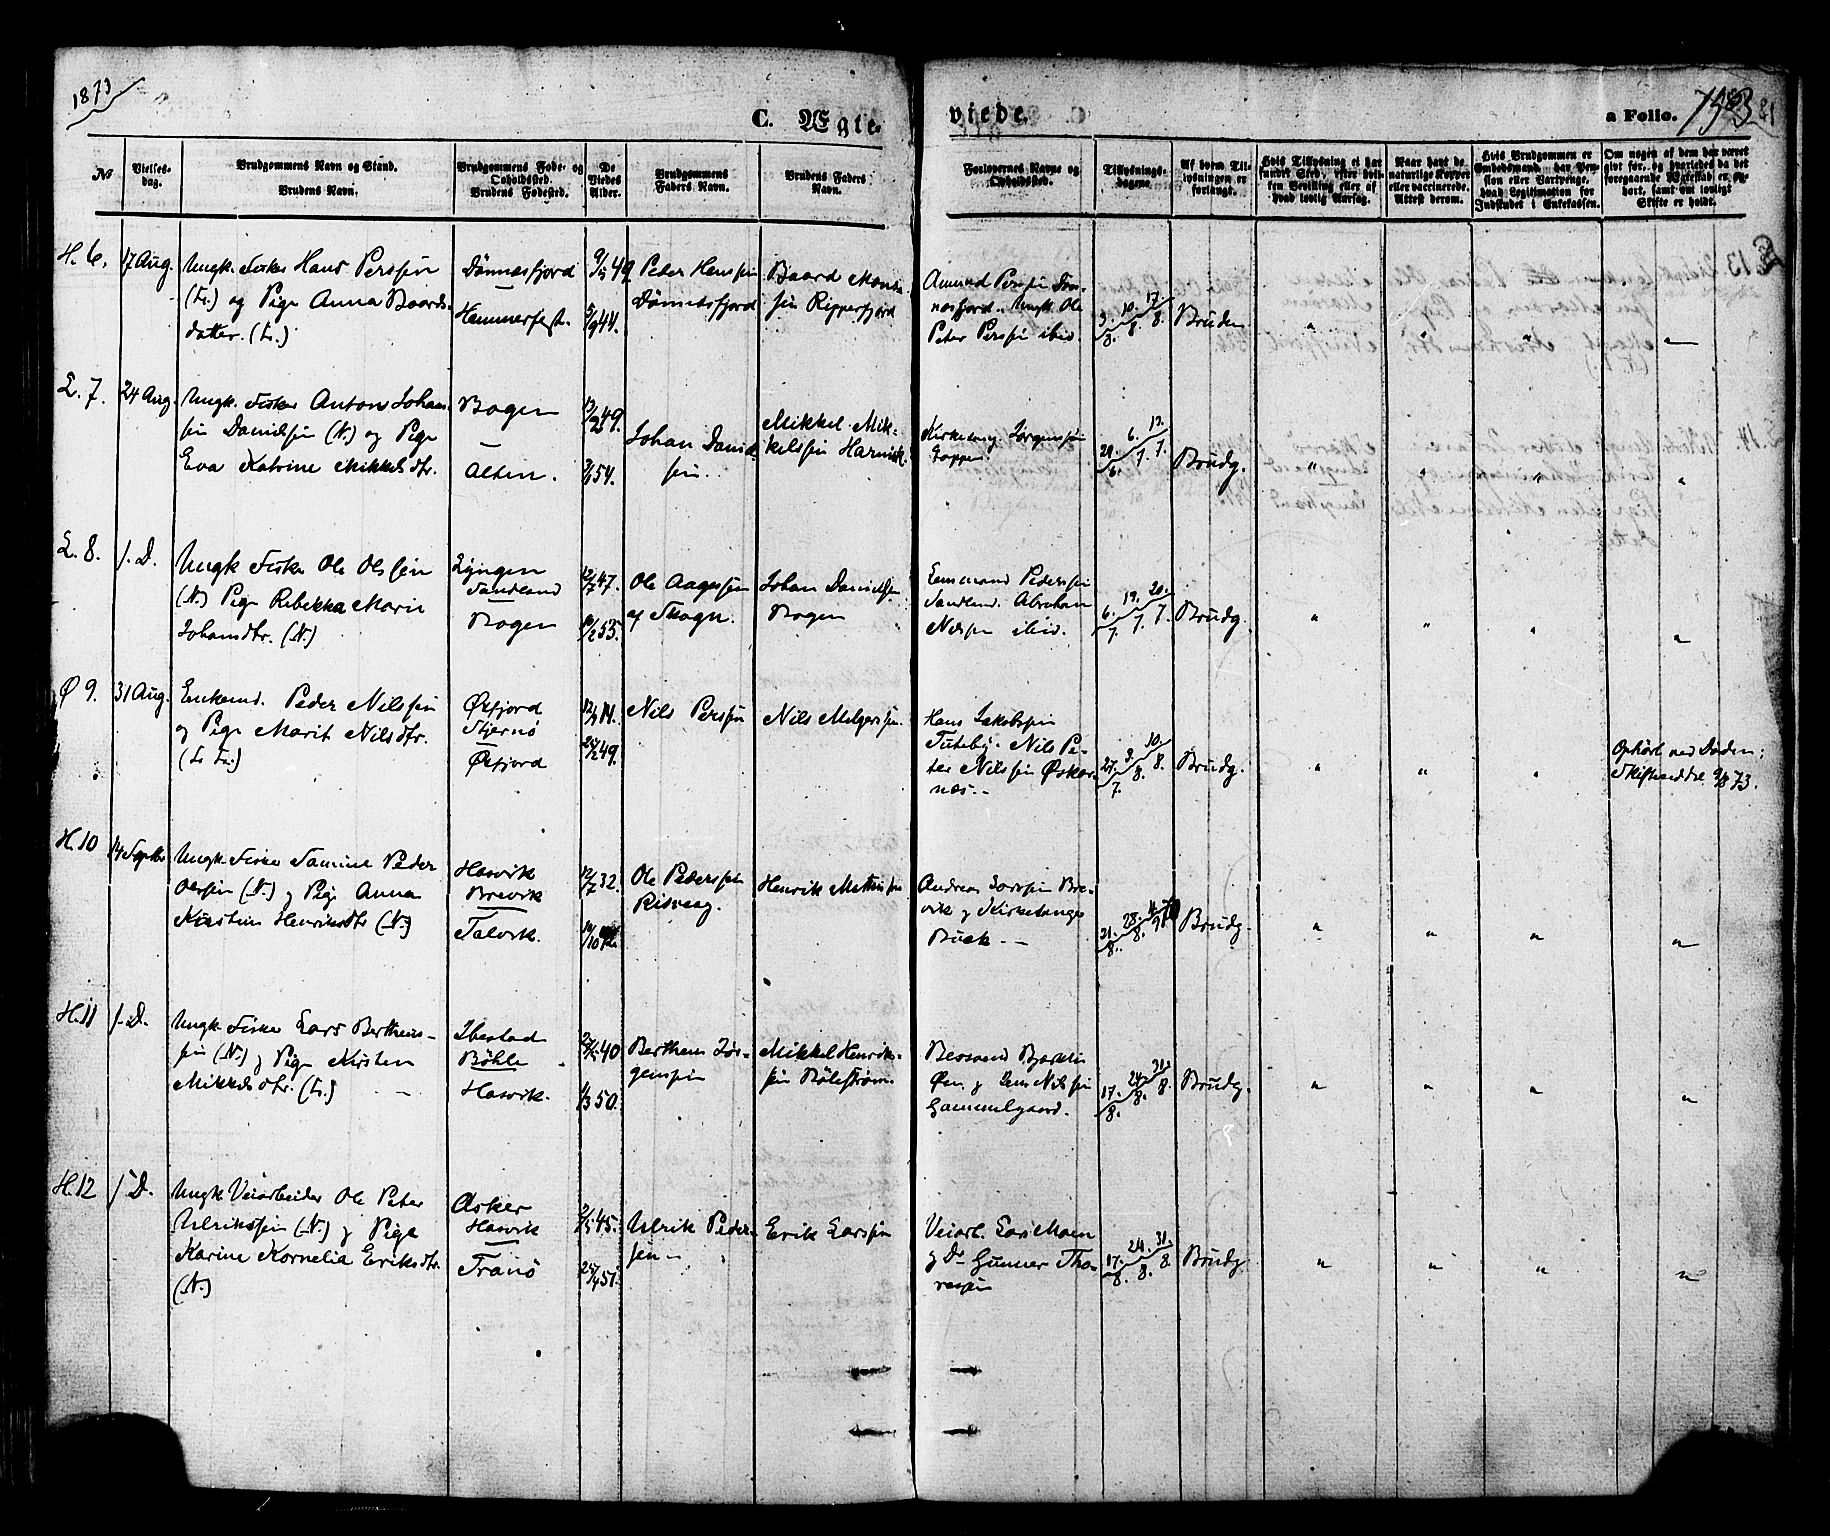 1873
C. Ægte-
viede.
a Folio. 153
No
Vielses-
dag.
Brudgommens Navn og Stand.
Brudens Navn.
Brudgommens Føde- og
Opholdssted.
Brudens Fødested.
De
Viedes
Alder.
Brudgommens
Faders Navn.
Brudens Faders
Navn.
Forlovernes Navne og
Opholdssted.
Tillysnings-
dagene.
Af hvem Til-
lysningen er
forlangt.
Hvis Tillysning ei har
fundet Sted, efter hvil-
ken Bevilling eller af
hvad lovlig Aarsag.
Naar havt de
naturlige Kopper
eller vaccinerede.
Attest derom.
Hvis Brudgommen er
Embedsmand, har Pen-
sion eller Vartpenge,
hvad Legitimation for
Indskudet i Enkekassen.
Om nogen af dem har været
givt før, og hvorledes da det
foregaaende Ægteskab er op-
hørt, samt om lovligt
Skifte er holdt.
H. 6.
17 Aug.
Ungk. Fisker Hans Perssen
(Fr.) og Pige Anna Baards-
datter. (Fr.)
Dönnesfjord
Hammerfest.
9/5 49
5/9 44.
Peter Hanssen
Dönnesfjord
Baard Mons-
sen Ripperfjord
Amund Perssen Dön-
nesfjord. Ungk Ole
Peter Perssen ibid.
3. 10. 17.
8. 8. 8.
Bruden
" " " "
L. 7.
24 Aug.
Ungk. Fisker Anton Johan-
sen Danielsen (N.) og Pige
Eva Katrine Mikkelsdtr.
Bogen
Alten.
49.
54.
Johan Daniel-
sen.
Mikkel Mik-
kelssen
Kirkesang. Jörgensen
Loppen.
29. 6. 13.
6. 7. 7.
Brudg.
" " " "
L. 8.
s. D.
Ungk Fisker Ole Olssen
(N.) Pige Rebekka Marie
Johansdtr. (N.)
Lyngen
Sandland
Bogen
12/7 47.
53.
Ole Aagessen
af Skogn.
Johan Danielsen
Bogen
Emmund Pedersen
Sandland. Abraham
Nilsen ibid.
6. 13. 20.
7. 7. 7.
Brudg.
" " " "
Ø 9.
31 Aug.
Enkemd. Peder Nilssen
og Pige Marit Nilsdtr.
Øxfjord
Stjernö
Øxfjord
14.
49.
Nils Perssen
Nils
Hans Jakobssen
Tuteby. Nils Pe-
ter Nilssen Øskar-
næs.
27. 3. 10.
7. 8. 8.
Brudg.
" " "
Ophört ved Döden;
73.
H. 10
14 Septbr
Ungk Fisker Samuel Peder
Olssen (N.) og Pige Anna
Kirstine Henriksdtr (N.)
Hasvik
Brevik
Talvik.
12/7 32.
Ole Pederssen
Risvaag.
Henrik
Andreas Larssen Bre-
vik og Kirkesanger
Buck
21. 28.
8. 8. 9
Brudg.
" " " "
H. 11
s. D.
Ungk Fisker Lars Berthens-
sen (N.) og Pige Kirsten
Mikkelsdtr. (Fr.)
Ibestad
Böhle
Hasvik.
40
1/3 50.
Berthens Jör-
gensen
Mikkel Henriks-
sen Bölestrøm.
Øen. og Jens Nilssen
Gammelgaard.
17. 24. 31.
8. 8. 8.
Brudg.
" " " "
H. 12
s. D.
Ungk. Veiarbeider Ole Peter
Ulrikssen (N.) og Pige
Karine Kornelia Eriksdtr.
(N.)
Asker
Hasvik
Tranö
45.
25/4 51.
Ulrik Peder-
sen
Erik Larssen
Veiarb. Lars Moen
og Do Gunner Tho-
resen
17. 24. 31.
8. 8. 8
Brudg.
" " " "